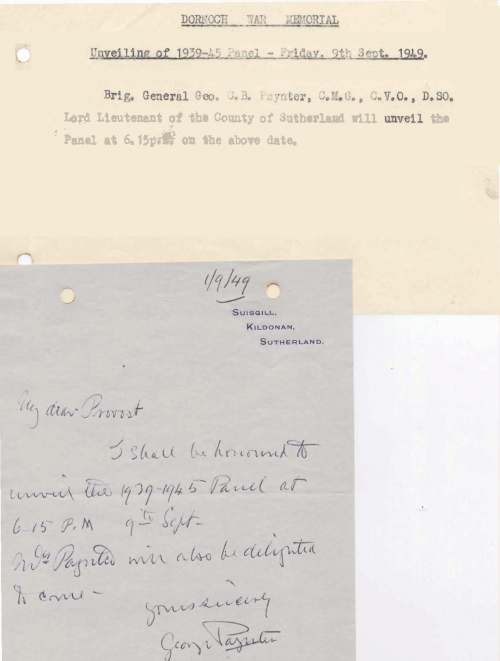 DORNOCH WAR MEMORIAL
Unveiling of 1939-45 Panel - Friday. 9th Sept. 1949.
Brig. General Geo. C.B. Paynter, C.M.G., C.V.O., D.SO.
Lord Lieutenant of the County of Sutherland will unveil the
Panel at 6.15pm on the above date.
1/9/49
SUISGILL,
KILDONAN,
SUTHERLAND.
My dear Provost
I shall be honoured to
unveil the 1939-1945 Panel at
6-15 P.M 9th Sept-
Mrs Paynter will also be delighted
to come -
yours sincerely
George Paynter